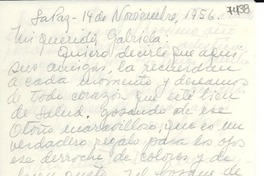 7438
La Paz - 14 de Noviembre, 1956.
Mi querida Gabriela:
Quiero decirle que aquí
sus amigas, la recuerdan
a cada momento y deseamos
de todo corazón que esté bien
de salud, gozando de ese
Otoño maravilloso, que es un
verdadero regalo para los ojos
ese derroche de colores y de
buen gusto. El bosque de